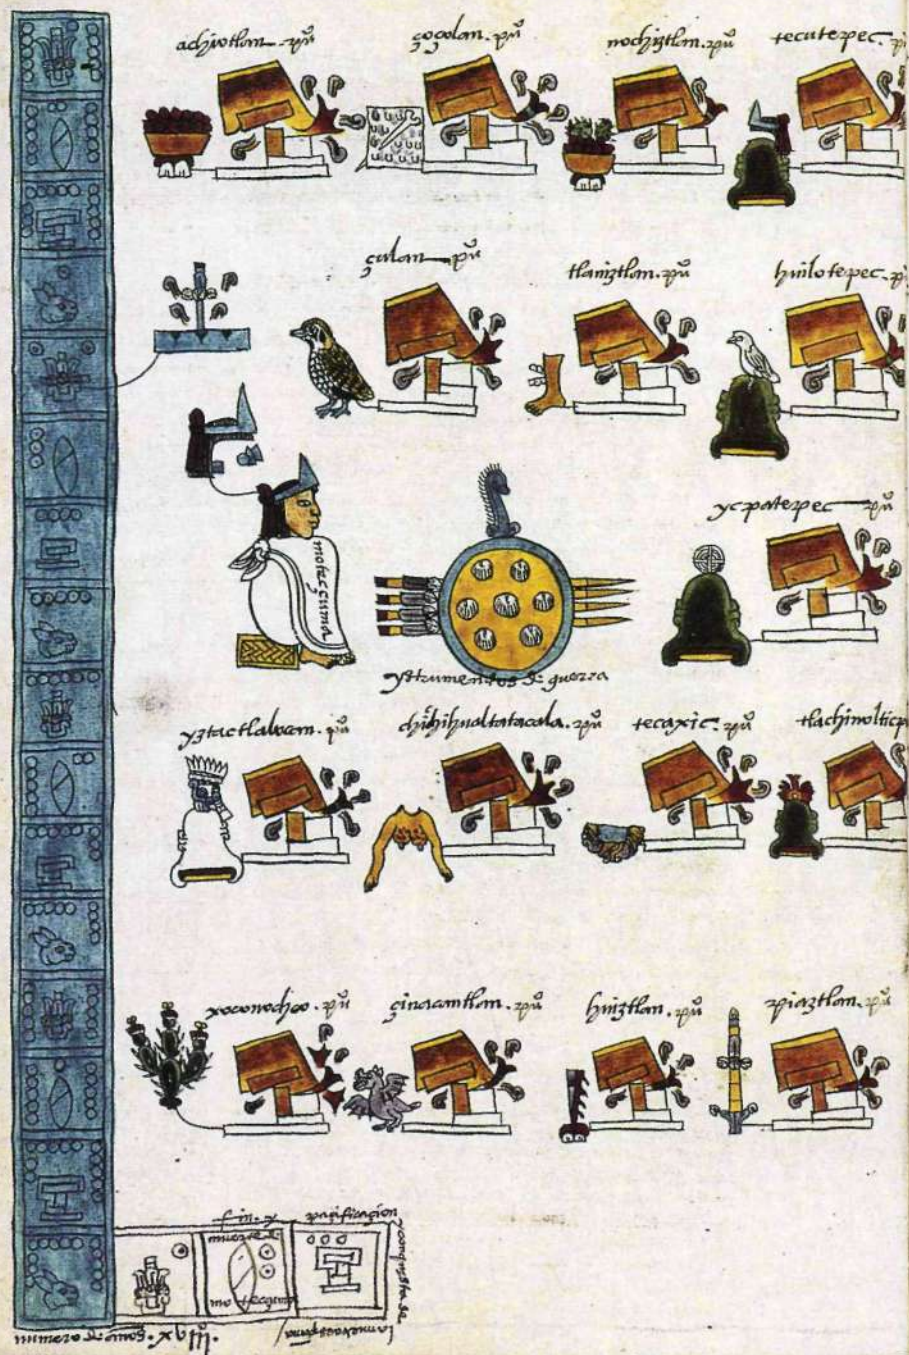 achiotlan. pũ
çoçolan. pũ
nochiztlan. pũ
tecutepec. p
çulan pũ
tlaniztlan. pũ
huilotepec. p
moteçuma
ycpatepec pũ
ystrumentos de guerra
yztactlalocan. pũ
chichihualtatacala. pũ
tecaxic. pũ
tlachinolticp
xoconochco. pũ
çinacantlan. pũ
huiztlan. pũ
piaztlan. pũ
fin. y
muerte de
moteçuma
paçificaçion
y conquista de
la nueva españa
numero de años. xviij.